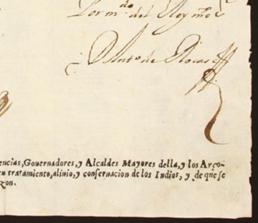 Por m.do del Rey nro s.r
D. Anto de Rosas
encias, Gouernadores, y Alcaldes Mayores della, y los Arço-
en tratamiento, aliuio, y conseruacion de los Indios, y de que se
zon.